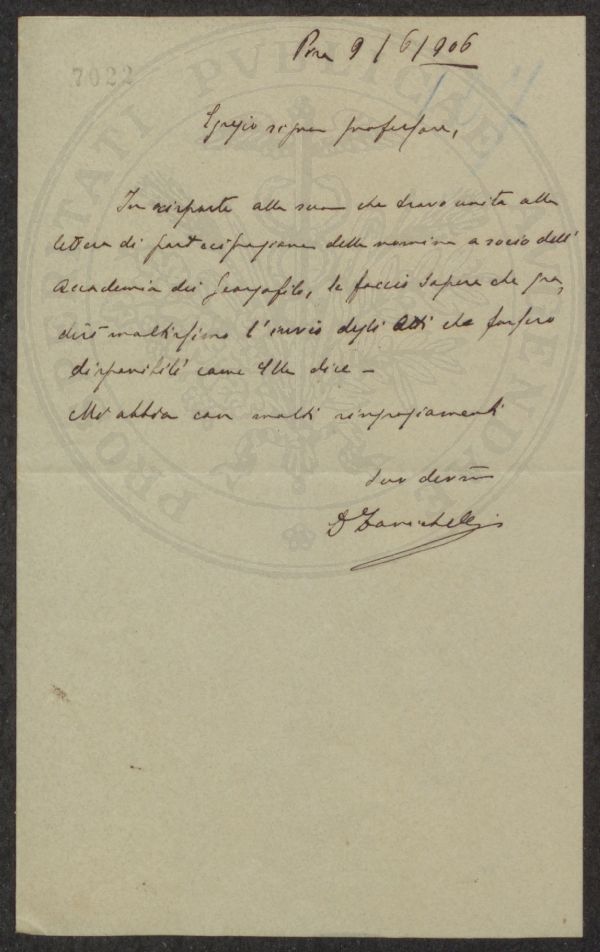 Pisa 9/6/906
7022
PROSPERITATI PUBLICAE AUGENDAE
Egregio signor professore,
In risposta alla sua che trovo unita alla
lettera di partecipazione della nomina a socio dell'
Accademia dei Georgofili, le faccio sapere che gra,
dirò moltissimo l'invio degli Atti che fossero
disponibili come Ella dice –
Mi abbia con molti ringraziamenti
Suo devmo
D Zanichelli